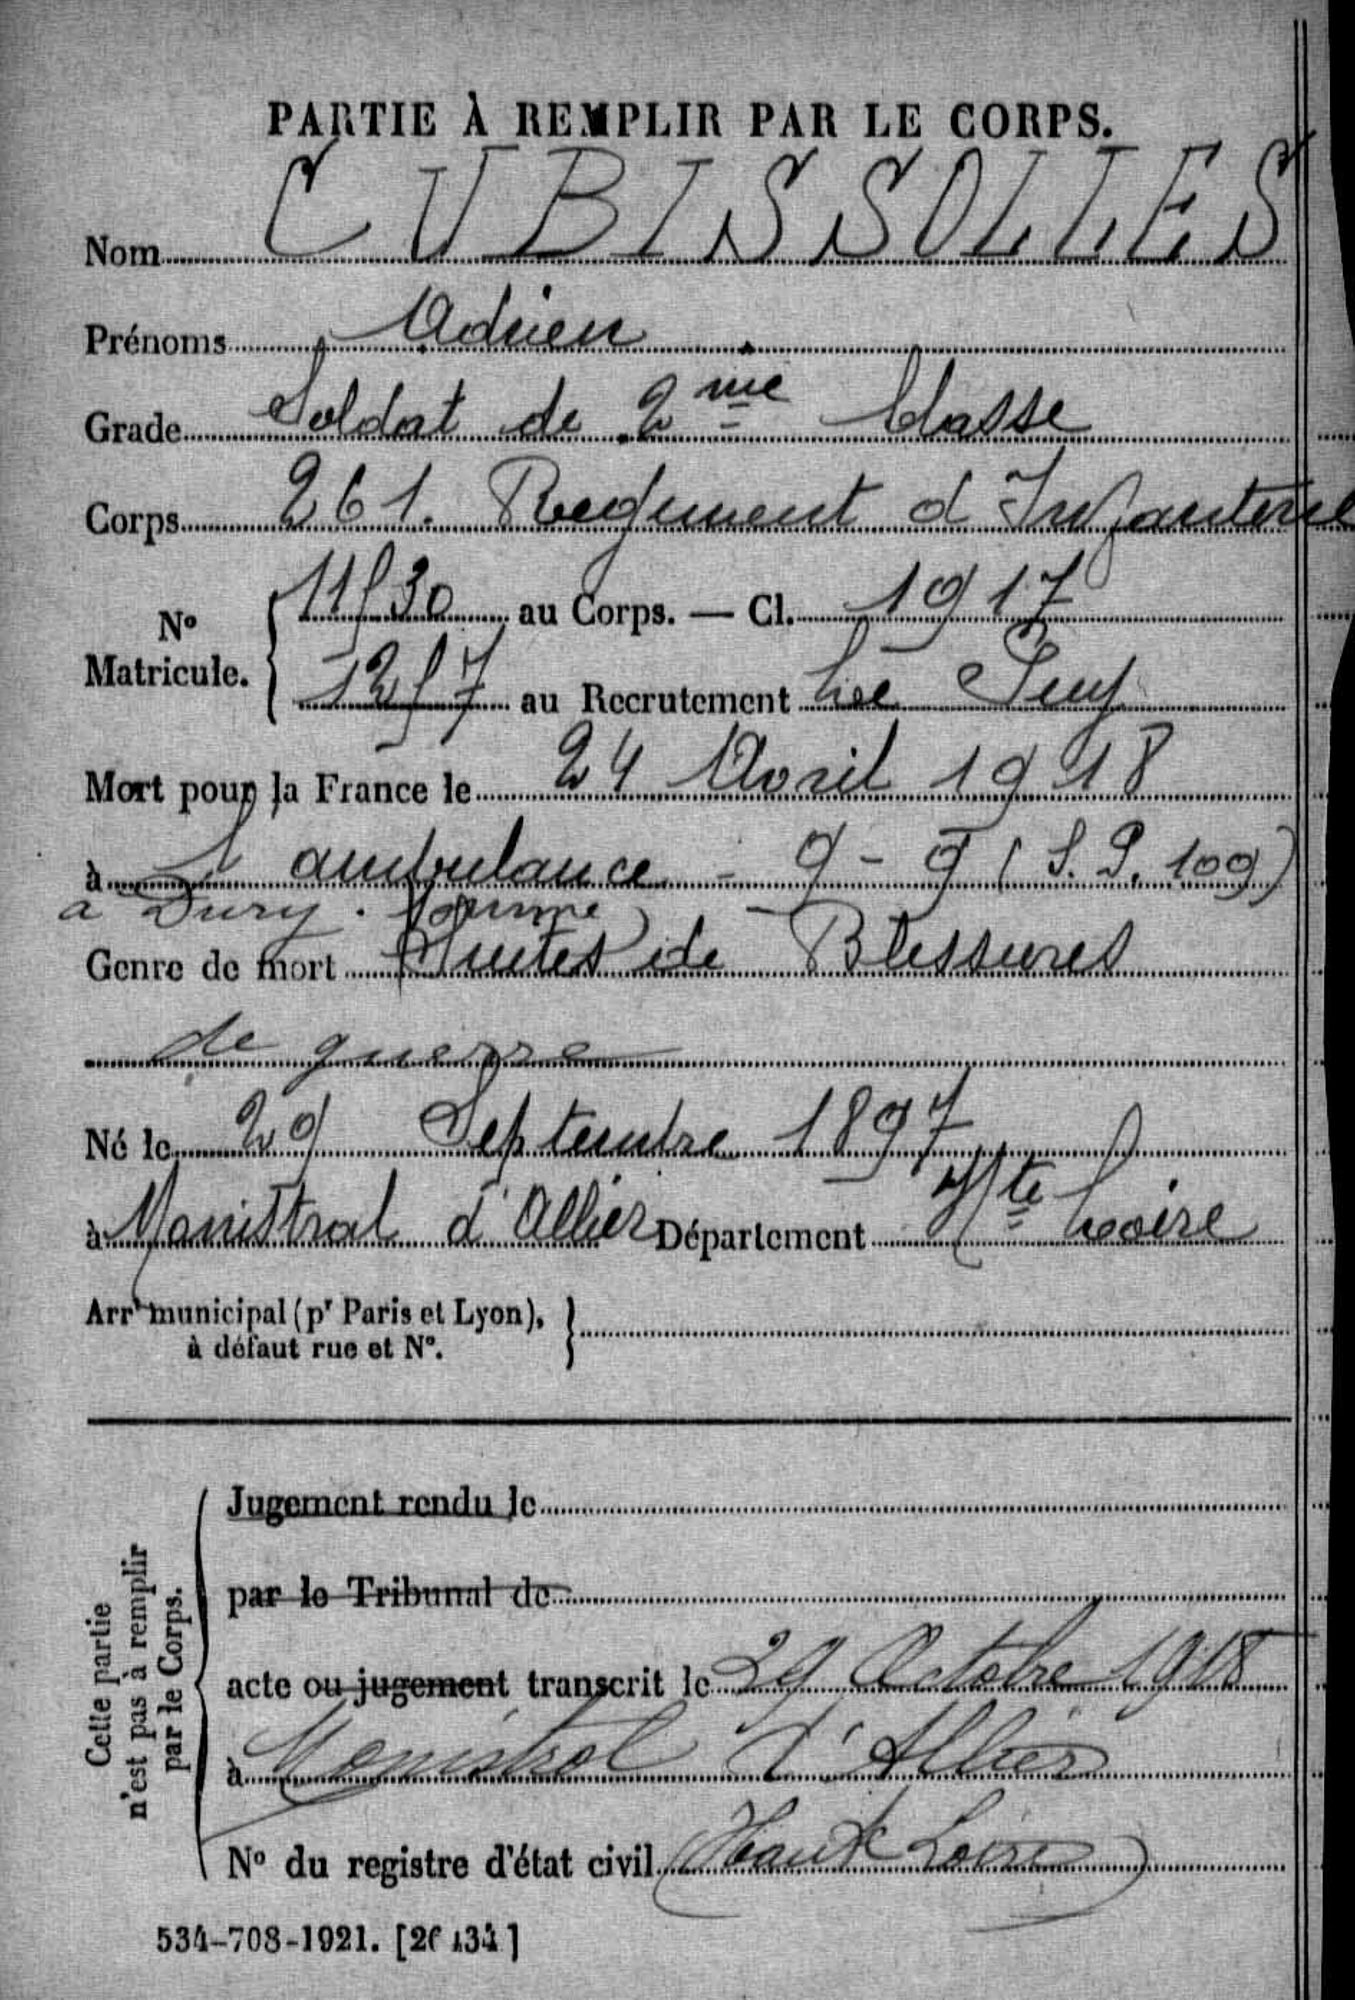 PARTIE À REMPLIR PAR LE CORPS.
Nom CUBISSOLLES
Prénoms Adrien
Grade Soldat de 2me Classe
Corps 261. Regiment d Infanterie
No Matricule. { 11530 au Corps. — Cl. 1917
1257 au Recrutement Le Puy
Mort pour la France le 24 Avril 1918
à l'ambulance - 9-9 (S.P. 109)
a Dury. Somme
Genre de mort Suites de Blessures
de guerre
Né le 29 Septembre 1897
à Monistral d'Allier Département Hte Loire
Arrt municipal (pr Paris et Lyon), }
à défaut rue et No.
Cette partie
n'est pas à remplir
par le Corps.
Jugement rendu le
par le Tribunal de
acte ou jugement transcrit le 29 Octobre 1918
à Monistrol d'Allier
No du registre d'état civil (Haute Loire)
534-708-1921.